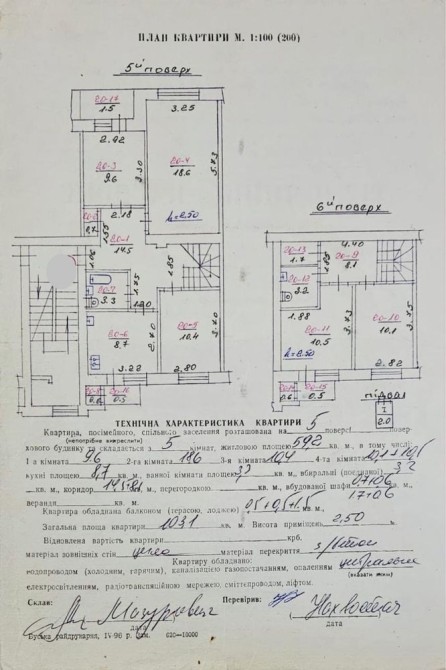 ПЛАН КВАРТИРИ М. 1:100 (200)
5й поверх
20-14
1.5
3.25
2.92
20-3
9.6
3.30
20-4
18.6
5.73
h=2.50
6й поверх
2.18
1.55
20-1
14.5
1.06
1.85
3.3
1.75
1.20
20-6
8.7
2.70
10.4
3.22
2.80
0.3
20-13
1.7
4.40
1.85
20-9
8.1
20-12
3.2
1.88
20-11
10.5
3.73
20-10
10.1
3.73
h=2.50
2.82
0.6
20-15
0.5
підвал
I
2.0
ТЕХНІЧНА ХАРАКТЕРИСТИКА КВАРТИРИ 5
Квартира, посімейного, спільного заселення розташована на 5 поверсі поверхового будинку та складається з
(непотрібне викреслити)
5 кімнат, житловою площею 59,2 кв. м, в тому числі:
1-а кімната 9.6 2-га кімната 18.6 3-я кімната 10.4 4-та кімната 10.1+10.5
кухні площею 8,7 кв. м, ванної кімнати площею кв. м, вбиральні (поєднаної) 3.2
кв. м, коридор кв. м, перегородкою кв. м, вбудованої шафи
кв. м
веранда кв. м.
Квартира обладнана балконом (терасою, лоджею) 0.5+0.5+1.5
Загальна площа квартири 103.1 кв. м. Висота приміщень 2,50 м.
Відновлена вартість квартири крб.
матеріал зовнішніх стін цегла матеріал перекриття з/бетон
Квартиру обладнано:
водопроводом (холодним, гарячим), каналізацією газопостачанням, опаленням
(вказати яким)
електроосвітленням, радіотрансляційною мережею, сміттєпроводом, ліфтом.
Склав: Перевірив:
дата дата
Буська райдрукарня, IV-96 р. Зам. 620—10000